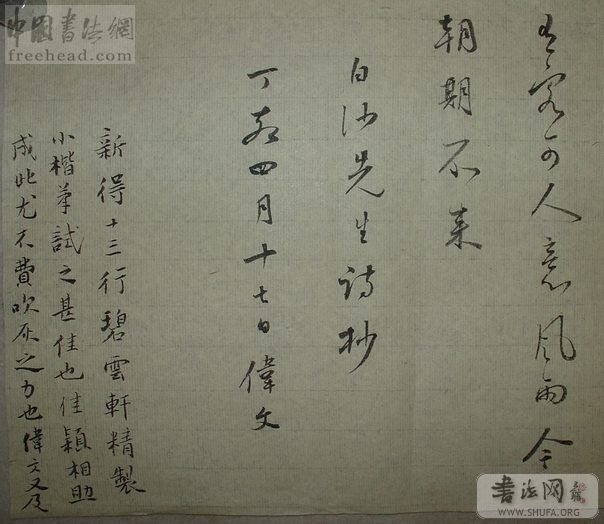 有客可人意風雨今
朝期不来
白沙先生詩抄
丁亥四月十七日偉文
新得十三行碧雲軒精製
小楷筆試之甚佳也佳穎相助
成此尤不費吹灰之力也偉文又及
中國書法網
freehead.com
書法网
WWW.SHUFA.ORG